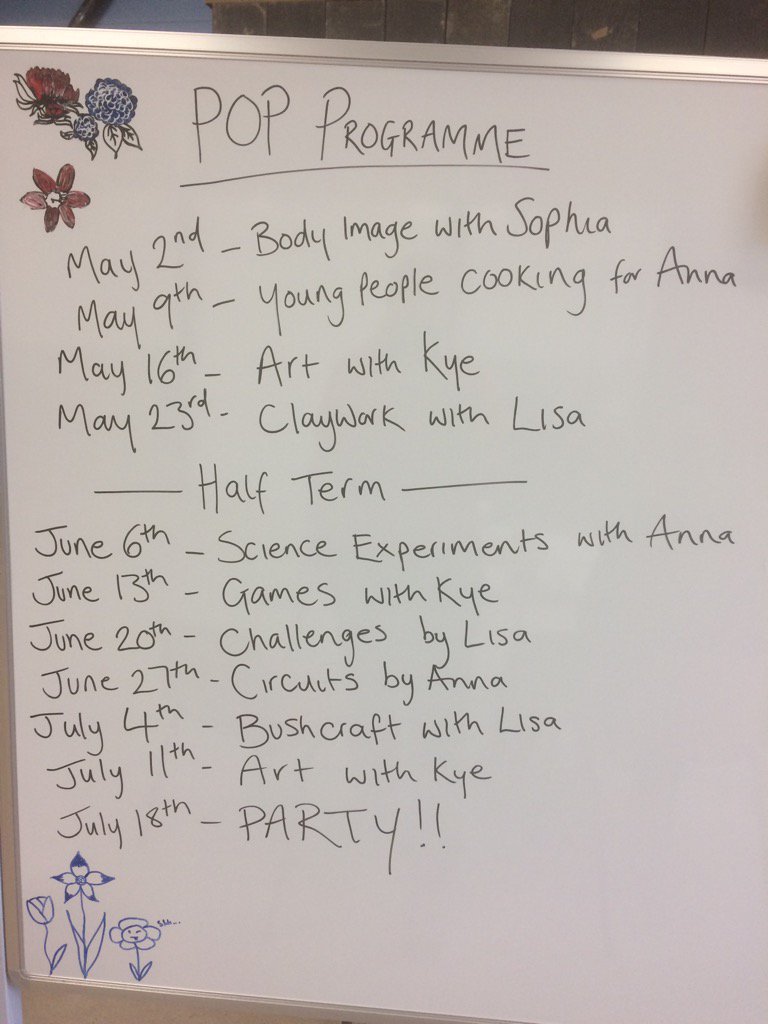 POP PROGRAMME
May 2nd - Body Image with Sophia
May 9th - Young People cooking for Anna
May 16th - Art with Kye
May 23rd - Claywork with Lisa
Half Term
June 6th - Science Experiments with Anna
June 13th - Games with Kye
June 20th - Challenges by Lisa
June 27th - Circuits by Anna
July 4th - Bushcraft with Lisa
July 11th - Art with Kye
July 18th - PARTY!!